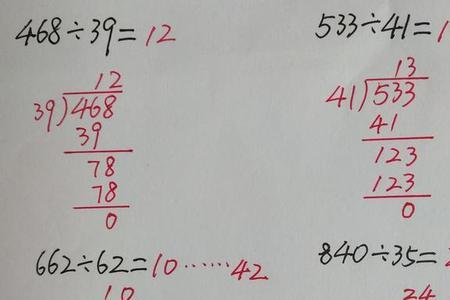 468÷39=12
12
39)468
39
78
78
0
533÷41=1
13
41)533
41
123
123
0
662÷62=10……42
10
840÷35=2
24